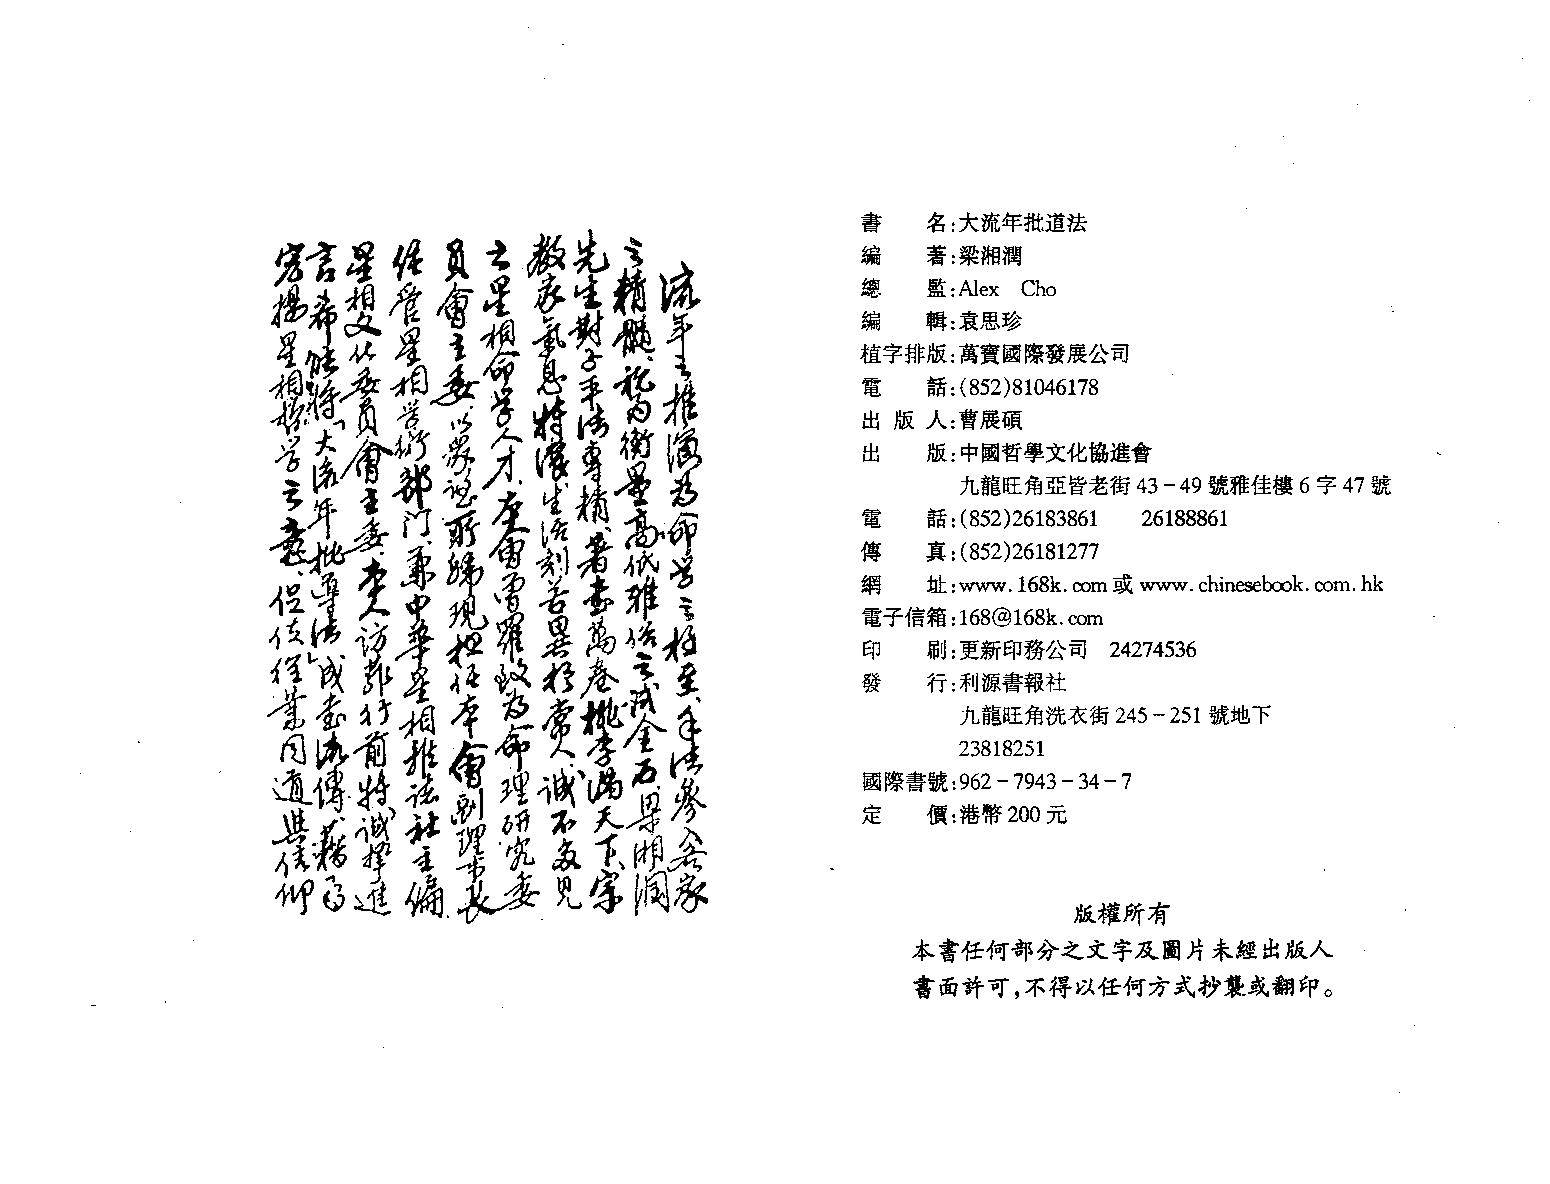 流年之推演為命學之極至、手法參入各家
之精髓、視為衡量高低雅俗之試金石、梁湘潤
先生對子平法專精、著書萬卷桃李滿天下、宗
教家氣息特濃、生活刻苦異於常人、誠不多見
之星相命學人才、本會曾羅致為命理研究委
員會主委、以眾望所歸現担任本會副理事長
任管星相學術部門、兼中華星相雜誌社主編
星相文化委員會主委、本人訪菲行前特誠摯進
言希能將「大流年批導法」成書流傳、藉以
宏揚星相格學之意、促使從業同道與信仰
書　　名:大流年批道法
編　　著:梁湘潤
總　　監:Alex　Cho
編　　輯:袁思珍
植字排版:萬寶國際發展公司
電　　話:(852)81046178
出 版 人:曹展碩
出　　版:中國哲學文化協進會
九龍旺角亞皆老街 43－49 號雅佳樓 6 字 47 號
電　　話:(852)26183861　　26188861
傳　　真:(852)26181277
網　　址:www.168k.com 或 www.chinesebook.com.hk
電子信箱:168@168k.com
印　　刷:更新印務公司　24274536
發　　行:利源書報社
九龍旺角洗衣街 245－251 號地下
23818251
國際書號:962－7943－34－7
定　　價:港幣 200 元
版權所有
本書任何部分之文字及圖片未經出版人
書面許可,不得以任何方式抄襲或翻印。